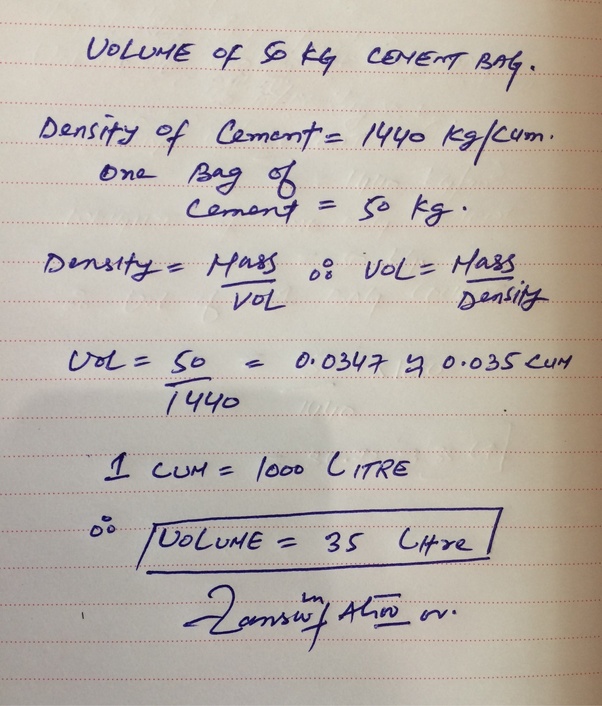 VOLUME OF 50 KG CEMENT BAG.
Density of Cement = 1440 Kg/cum.
One Bag of
Cement = 50 kg.
Density = Mass/VOL ∴ VOL = Mass/Density
VOL = 50/1440 = 0.0347 ≈ 0.035 CUM
1 CUM = 1000 LITRE
∴ VOLUME = 35 Litre